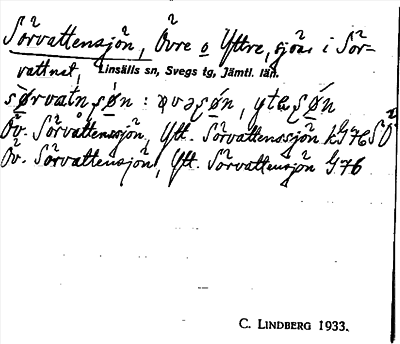 Sörvattensjön, Övre o Yttre, sjöar i Sör-
vattnet, Linsälls sn, Svegs tg, Jämtl. län.
Öv. Sörvattenssjön, Ytt. Sörvattenssjön kG76SÖ
Öv. Sörvattensjön, Ytt. Sörvattensjön G76
C. LINDBERG 1933.